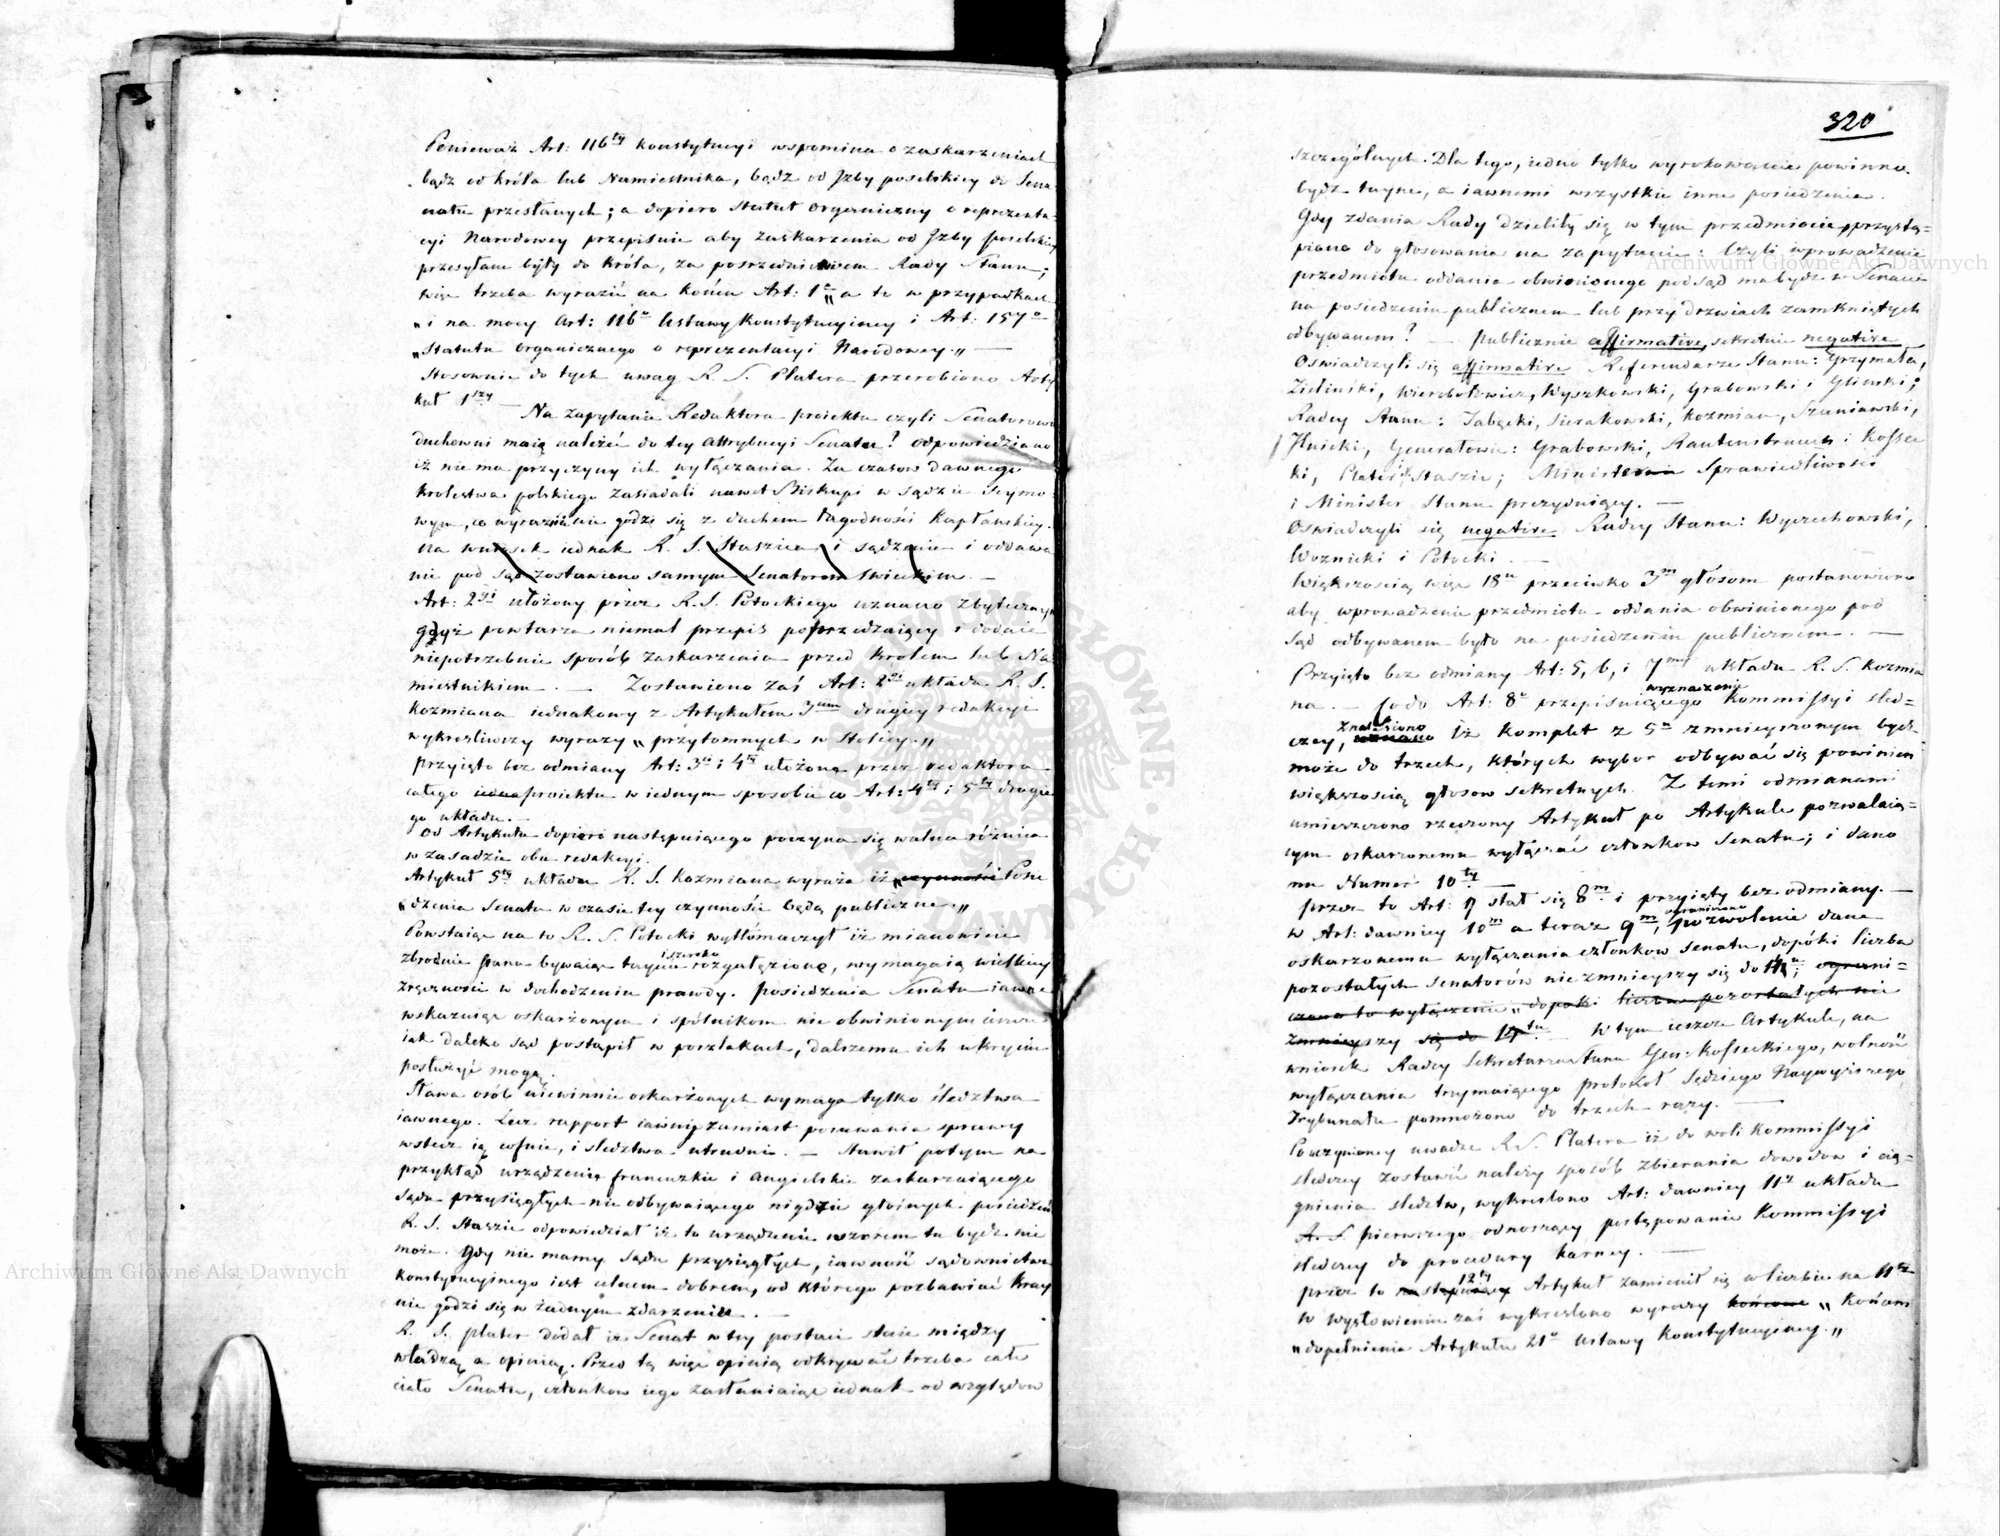 Ponieważ Art: 116ty konstytucyi wspomina o zaskarzeniach
bądz od króla lub Namiestnika, bądz od Jzby poselskiey do Sena
natu przesłanych; a dopiero Statut Organiczny o reprezenta-
cyi Narodowey przepisuie aby zaskarzenia od Jzby poselskiey
przesyłane były do króla, za posrzednictwem Rady Stanu;
więc trzeba wyrazić na końcu Art: 1o „a to w przypadkach
„i na mocy Art: 116o Ustawy Konstytucyiney i Art. 157o
„Statutu Organicznego o reprezentacyi Narodowey.„ —
Stosownie do tych uwag R. S. Platera przerobiono Arty
kuł 1szy — Na zapytanie Redaktora proiektu czyli Senatorowie
duchowni maią należeć do tey attrybucyi Senatu? odpowiedziano
iż nie ma przyczyny ich wyłączania. Za czasow dawnego
krolestwa polskiego zasiadali nawet Biskupi w sądzie Seymo-
wym, co wyraźnie nie godzi się z duchem łagodności Kapłańskiey.
na wniosek iednak R. S. Staszica i sądzenie i oddawa
nie pod sąd zostawiono samym Senatorom Swieckim. —
Art: 2gi ułożony przez R. S. Potockiego uznano zbytecznym
gdyż powtarza niemal przepis poprzedzaiący i dodaie
niepotrzebnie sposób zaskarzenia przed Krolem lub Na
miestnikiem. — Zostawiono zaś Art: 2gi układu R. S.
Kozmiana iednakowy z Artykułem 3cim drugiey redakcyi
wykresliwszy wyrazy „ przytomnych w Stolicy.„
Przyięto bez odmiany Art: 3ci i 4ty ułożone przez redaktora
całego proiektu w iednym sposobie co Art: 4ty i 5ty drugie
go układu. —
Od Artykułu dopiero następuiącego poczyna się walna różnica
w zasadzie obu redakcyi.
Artykuł 5ty układu R. S. Kozmiana wyraża iż „czynności Posie
„dzenia Senatu w czasie tey czynności będą publiczne.„
Powstaiąc na to R. S. Potocki wytłómaczył iż mianowicie
zbrodnie stanu bywaiąc taynie i szeroko rozgałęzione, wymagaią wielkiey
zręczności w dochodzeniu prawdy. Posiedzenia Senatu iawne
wskazuiąc oskarżonym i spólnikom nie obwinionym ieszcze
iak daleko sąd postąpił w poszlakach, dalszemu ich ukryciu
posłużyć mogą.
Sława osób niewinnie oskarżonych wymaga tylko śledztwa
iawnego. Lecz rapport iawny zamiast posuwania sprawy
wstecz ią cofnie, i sledztwo utrudni. — Stawił potym na
przykład urządzenie francuzkie i angielskie zaskarzaiącego
sądu przysięgłych nie odbywaiącego nigdzie głośnych posiedzeń
R. S. Staszic odpowiedział iż to urządzenie wzorem tu bydz nie
może. Gdy nie mamy sądu przysięgłych, iawność sądownictwa
konstytucyinego iest celnem dobrem, od którego pozbawiać Kray
nie godzi się w żadnym zdarzeniu. —
R. S. Plater dodał iż Senat w tey postaci staie między
władzą a opinią. Przed tą więc opinią odkrywać trzeba całe
ciało Senatu, członkow iego zasłaniaiąc iednak od względow
320
szczególnych. Dla tego, iedno tylko wyrokowanie powinno
bydz tayne, a iawnemi wszystkie inne posiedzenia.
Gdy zdania Rady dzieliły się w tym przedmiocie przystą-
piono do głosowania na zapytanie: Czyli wprowadzenie
przedmiotu oddania obwinionego pod sąd ma bydz w Senacie
na posiedzeniu publicznem lub przy drzwiach zamkniętych
odbywanem? — Publicznie affirmative, sekretnie negative
Oświadczyli się affirmative Referendarze Stanu: Grzymała,
Zieliński, Wierzbołowicz, Wyszkowski, Grabowski i Gliński;
Radcy Stanu: Jabęcki, Sierakowski, Kozmian, Szaniawski,
Generałowie: Grabowski, Rautenstrauch i Kossec
ki, Plater i Staszic; Minister Sprawiedliwości
i Minister Stanu prezyduiący. —
Oświadczyli się negative Radcy Stanu: Wyczechowski,
Woznicki i Potocki. —
Większością więc 18u przeciwko 3m głosom postanowiono
aby wprowadzenie przedmiotu oddania obwinionego pod
sąd odbywanem było na posiedzeniu publicznem. —
Przyięto bez odmiany Art: 5, 6, i 7my układu R. S. Kozmia
na. — Co do Art: 8o przepisuiącego wyznaczenie Kommissyi sled-
czey, znaleziono iż komplet z 5u zmnieyszonym bydz
może do trzech, których wybor odbywać się powinien
większością głosow sekretnych. Z temi odmianami
umieszczono rzeczony Artykuł po Artykule pozwalaią-
cym oskarzonemu wyłączać członkow Senatu; i dano
mu Numer 10ty. —
Przez to Art: 9 stał się 8m i przyięty bez odmiany. —
w Art: dawniey 10m a teraz 9m, ograniczono pozwolenie dane
oskarzonemu wyłączania członkow Senatu, dopóki liczba
pozostałych Senatorów nie zmnieyszy się do 14u; ograni-
czono to wyłączenie „dopoki liczba pozostałych nie
zmnieyszy się do 14tu — W tym ieszcze Artykule, na
wniosek Radcy Sekretarza Stanu Gen: Kosseckiego, wolność
wyłączania trzymaiącego protokoł Sędziego Naywyższego
Trybunału pomnożono do trzech razy. —
Poczynioney uwadze R. S. Platera iż do woli Kommissyi
śledczey zostawić należy sposób zbierania dowodow i cią-
gnienia sledztw, wykreslono Art: dawniey 11ty układu
R. S. pierwszego odnoszący postępowanie Kommissyi
sledczey do procedury karney. —
Przez to następuiący 12ty Artykuł zamienił się w liczbie na 11ty
w wysłowieniu zaś wykreslono wyrazy końcowe „ Końcem
„dopełnienia Artykułu 21o Ustawy Konstytucyiney.„